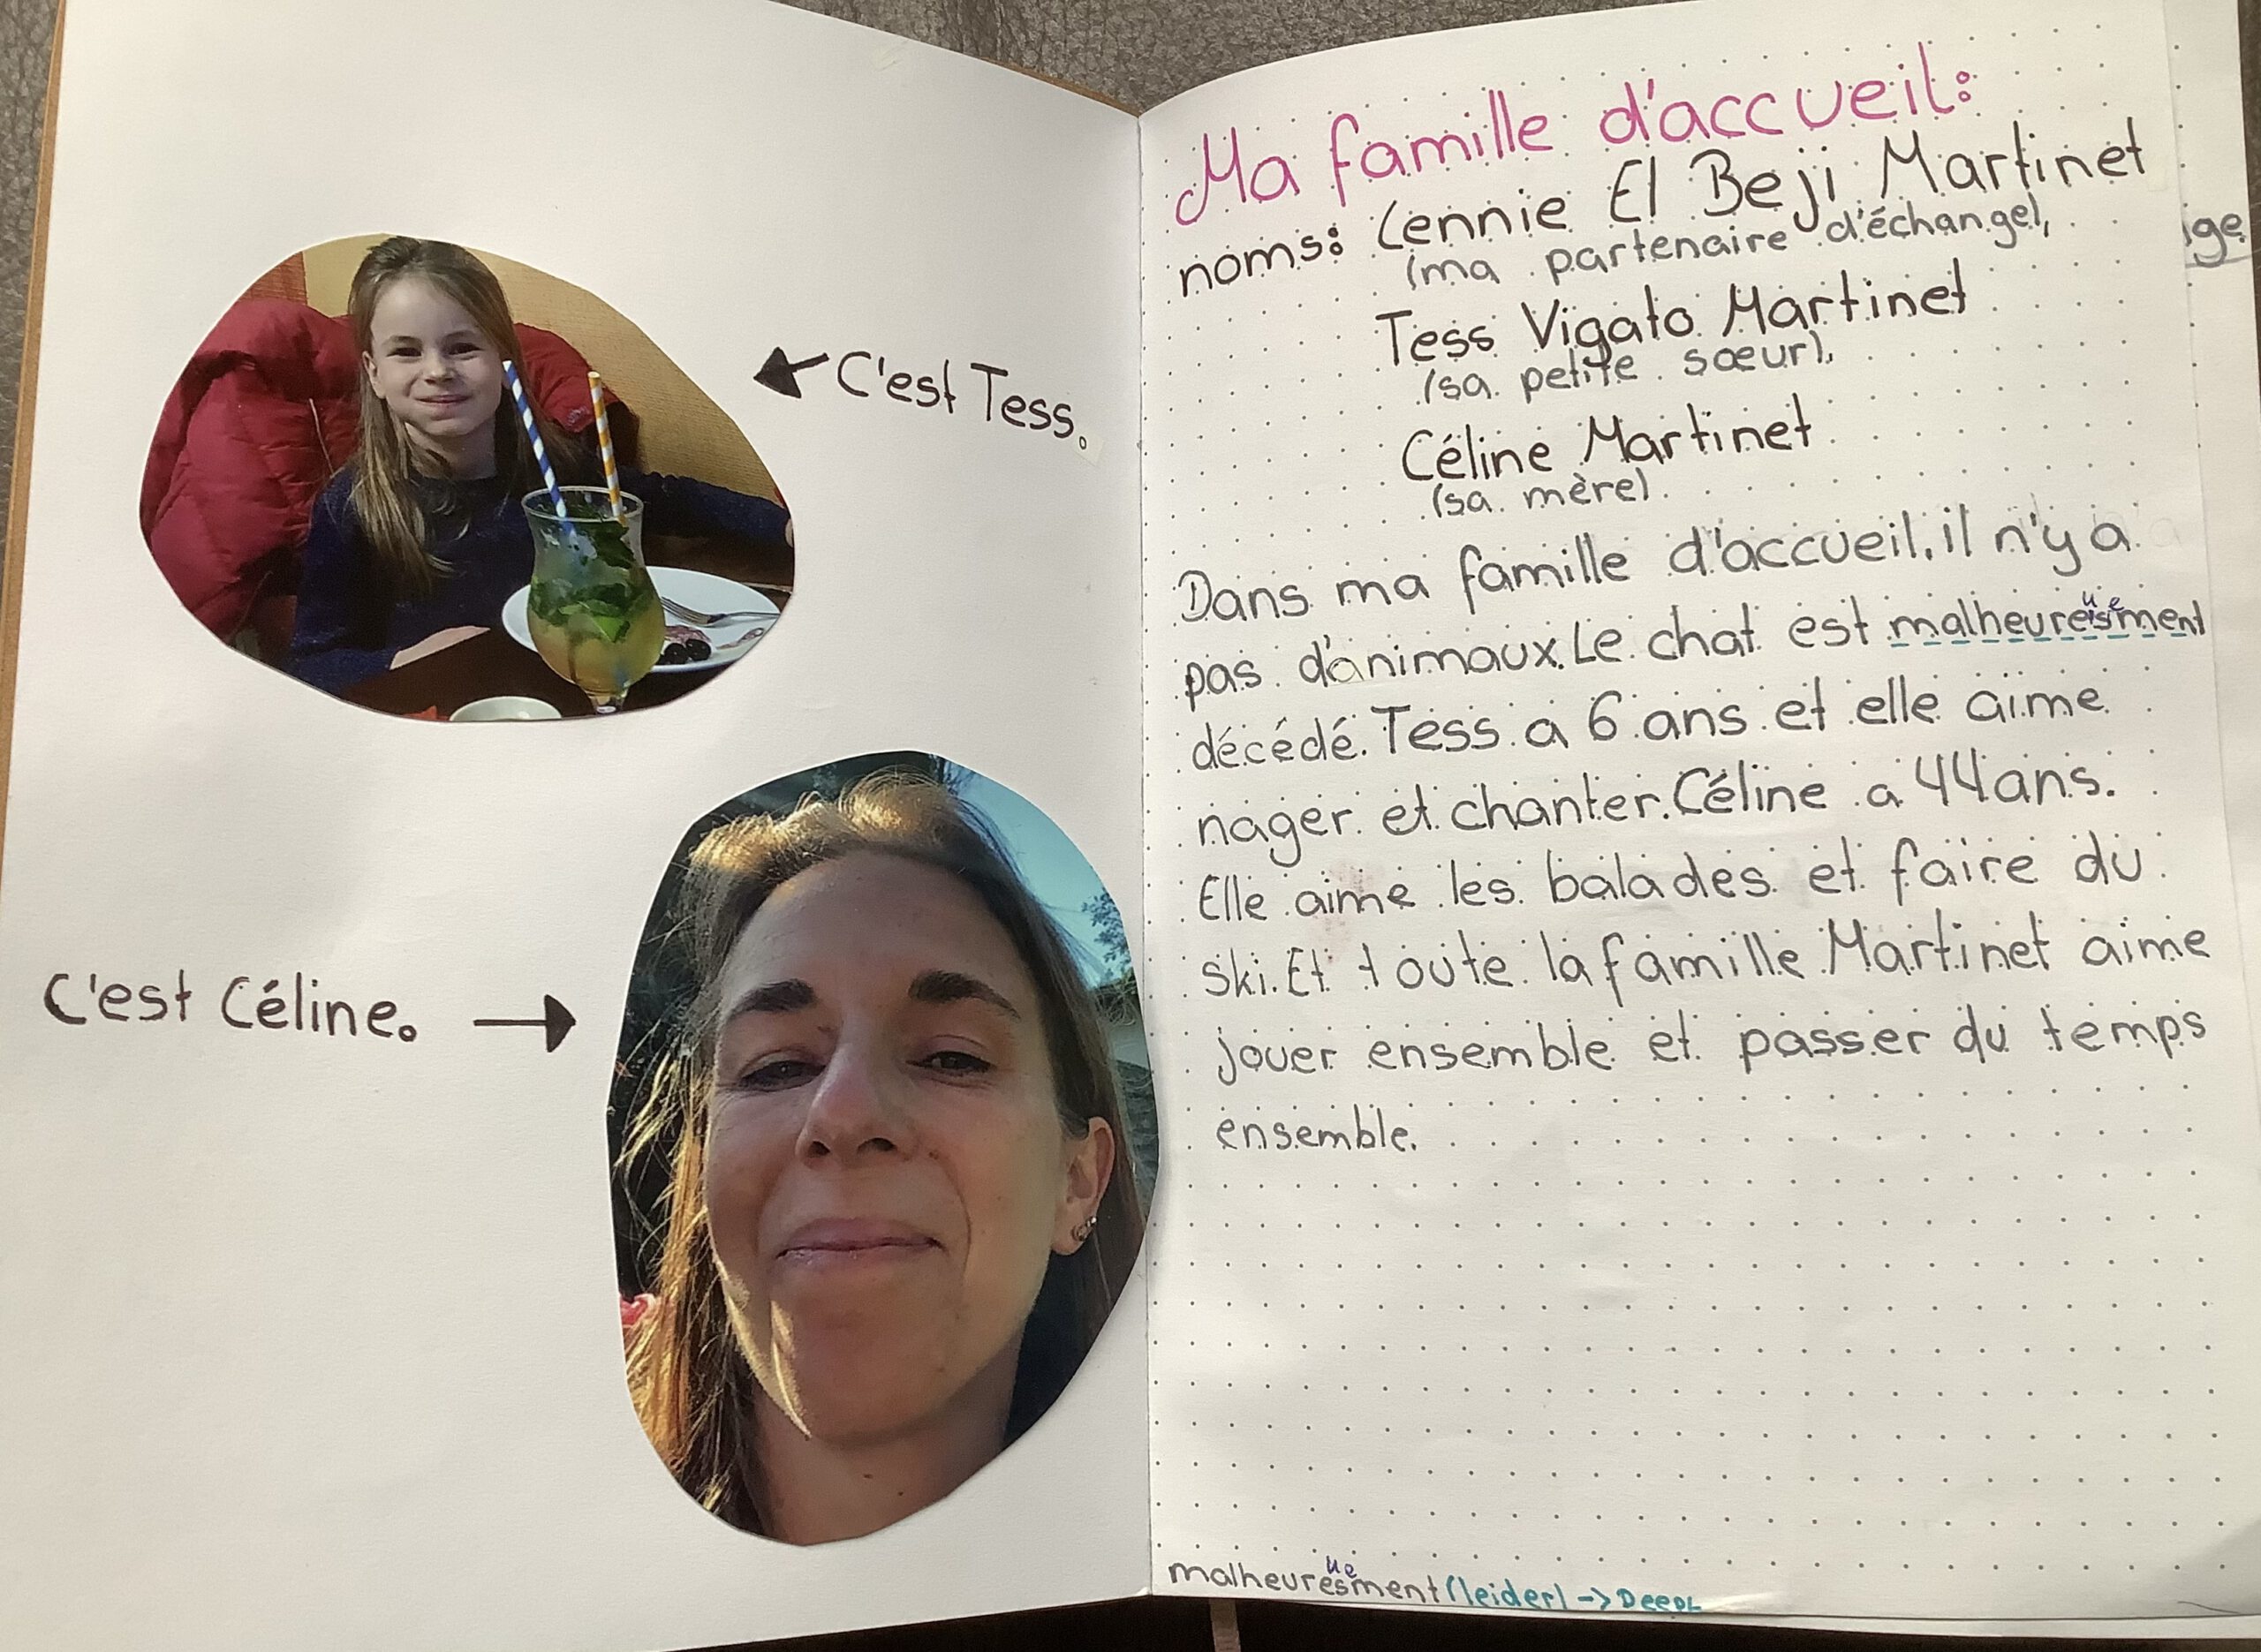 C'est Tess.
C'est Céline.
Ma famille d'accueil:
noms: Lennie El Beji Martinet
(ma partenaire d'échange),
Tess Vigato Martinet
(sa petite sœur),
Céline Martinet
(sa mère).
Dans ma famille d'accueil, il n'y a
pas d'animaux. Le chat est malheureusement
décédé. Tess a 6 ans et elle aime
nager et chanter. Céline a 44 ans.
Elle aime les balades et faire du
ski. Et toute la famille Martinet aime
jouer ensemble et passer du temps
ensemble.
malheureusement (leider) -> DeepL
ge